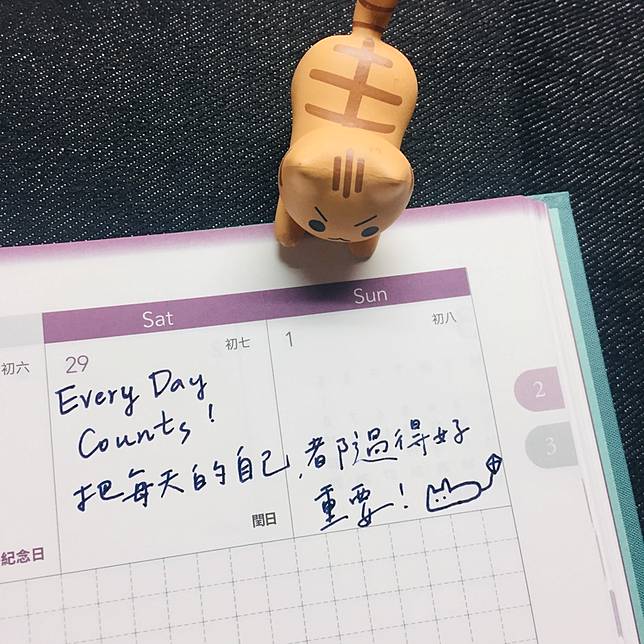 Sat
Sun
初六
29
初七
1
初八
Every Day
Counts!
把每天的自己,都過得好
重要!
閏日
紀念日
2
3